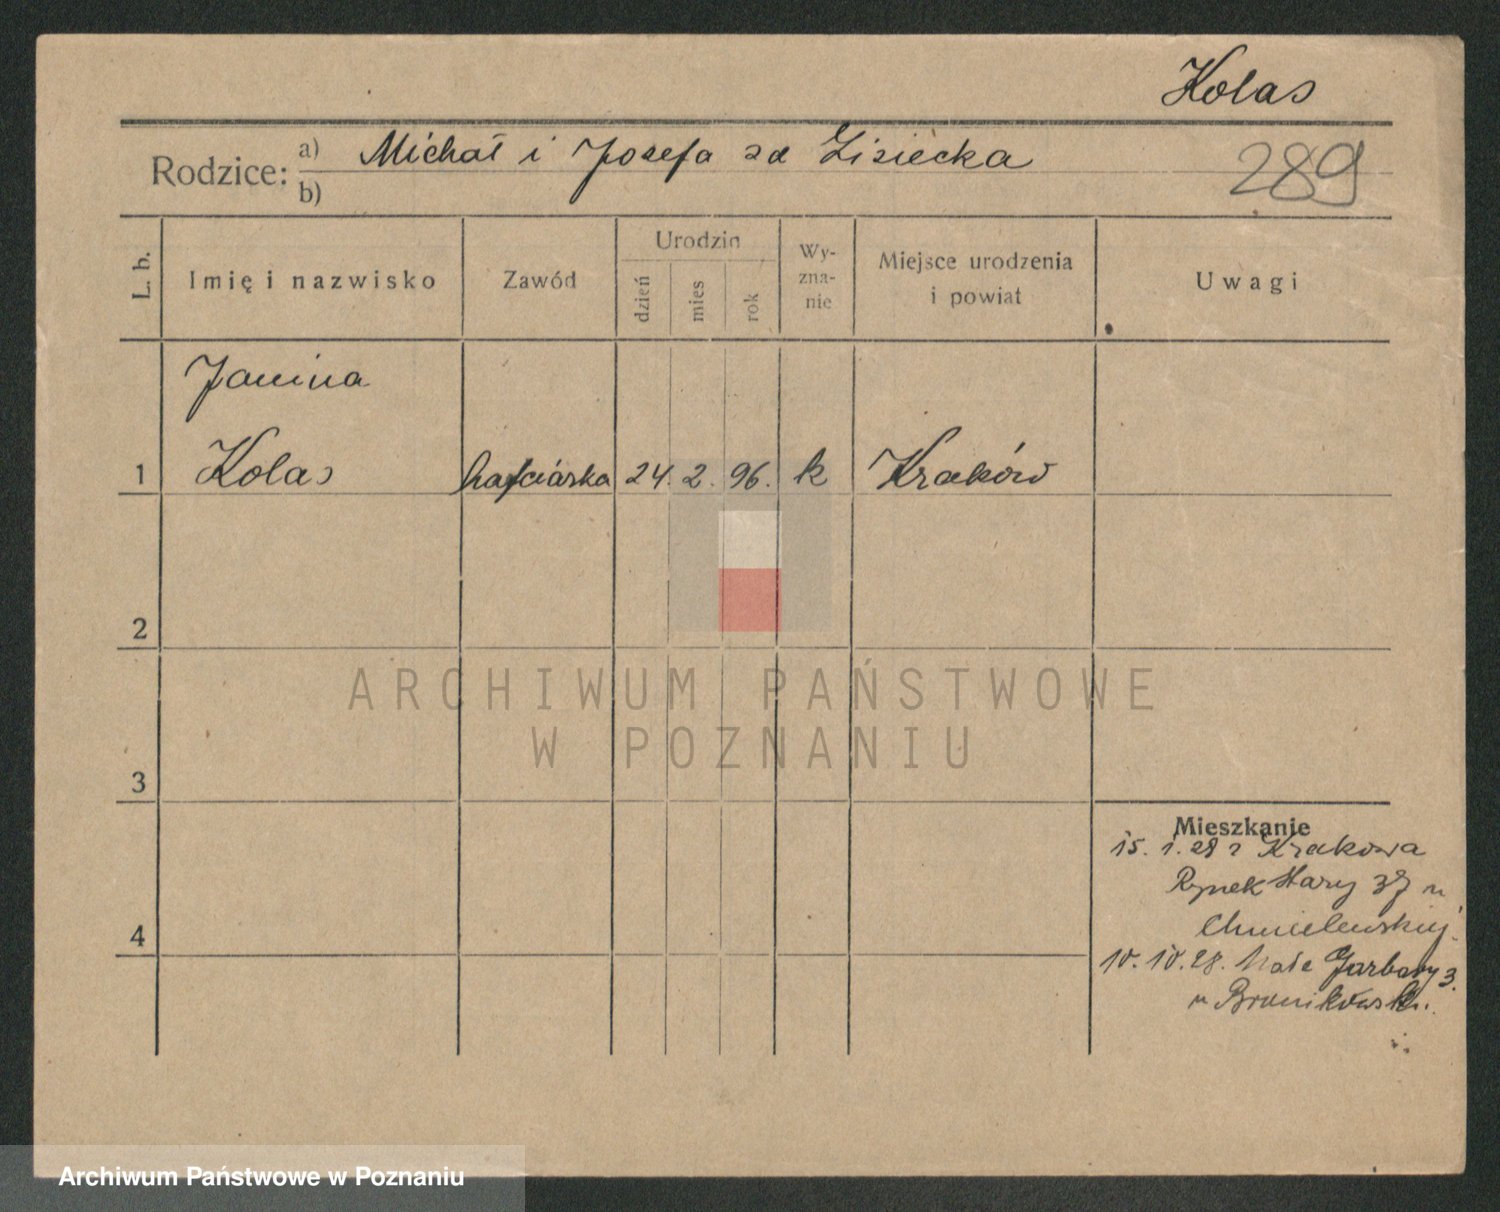 Kolas
Rodzice: a) Michał i Józefa zd Lisiecka
b)
289
L. b. Imię i nazwisko Zawód Urodzin dzień mies rok Wy-zna-nie Miejsce urodzenia i powiat Uwagi
Janina
1 Kolas hafciarka 24. 2. 96. k Kraków
2
ARCHIWUM PAŃSTWOWE
W POZNANIU
3
Mieszkanie
15. 1. 28 z Krakowa
Rynek Stary 37 u
Chmielewskiej.
4
10. 10. 28. Małe Garbary 3.
u Bronikowski.
Archiwum Państwowe w Poznaniu